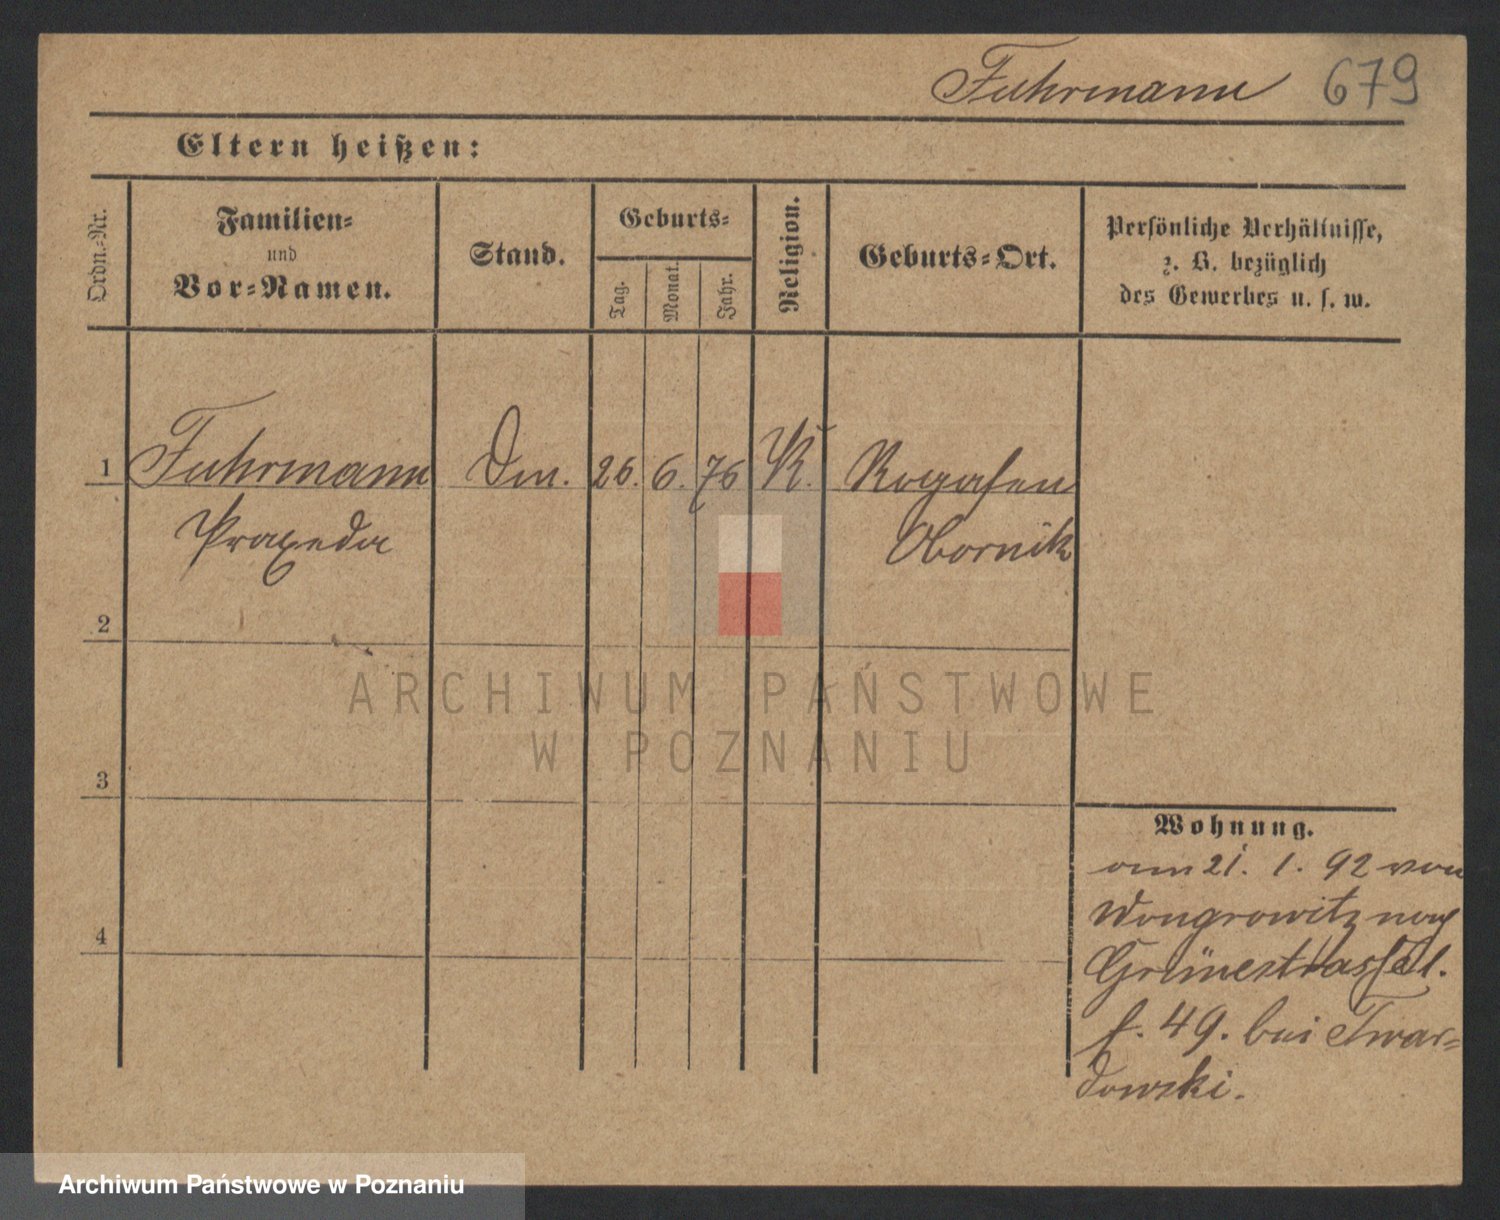 Fuhrmann 679
Eltern heißen:
Ordn.-Nr.
Familien-
und
Vor-Namen.
Stand.
Geburts-
Tag.
Monat.
Jahr.
Religion.
Geburts-Ort.
Persönliche Verhältnisse,
z. B. bezüglich
des Gewerbes u. s. w.
1 Fuhrmann 26. 6. 76 K. Rogasen
Praxeda Obornik
2
3
4
ARCHIWUM PAŃSTWOWE
W POZNANIU
Wohnung.
am 21. 1. 92 von
Wongrowitz nach
Grünestrasse 1.
f. 49. bei Twar-
dowski.
Archiwum Państwowe w Poznaniu